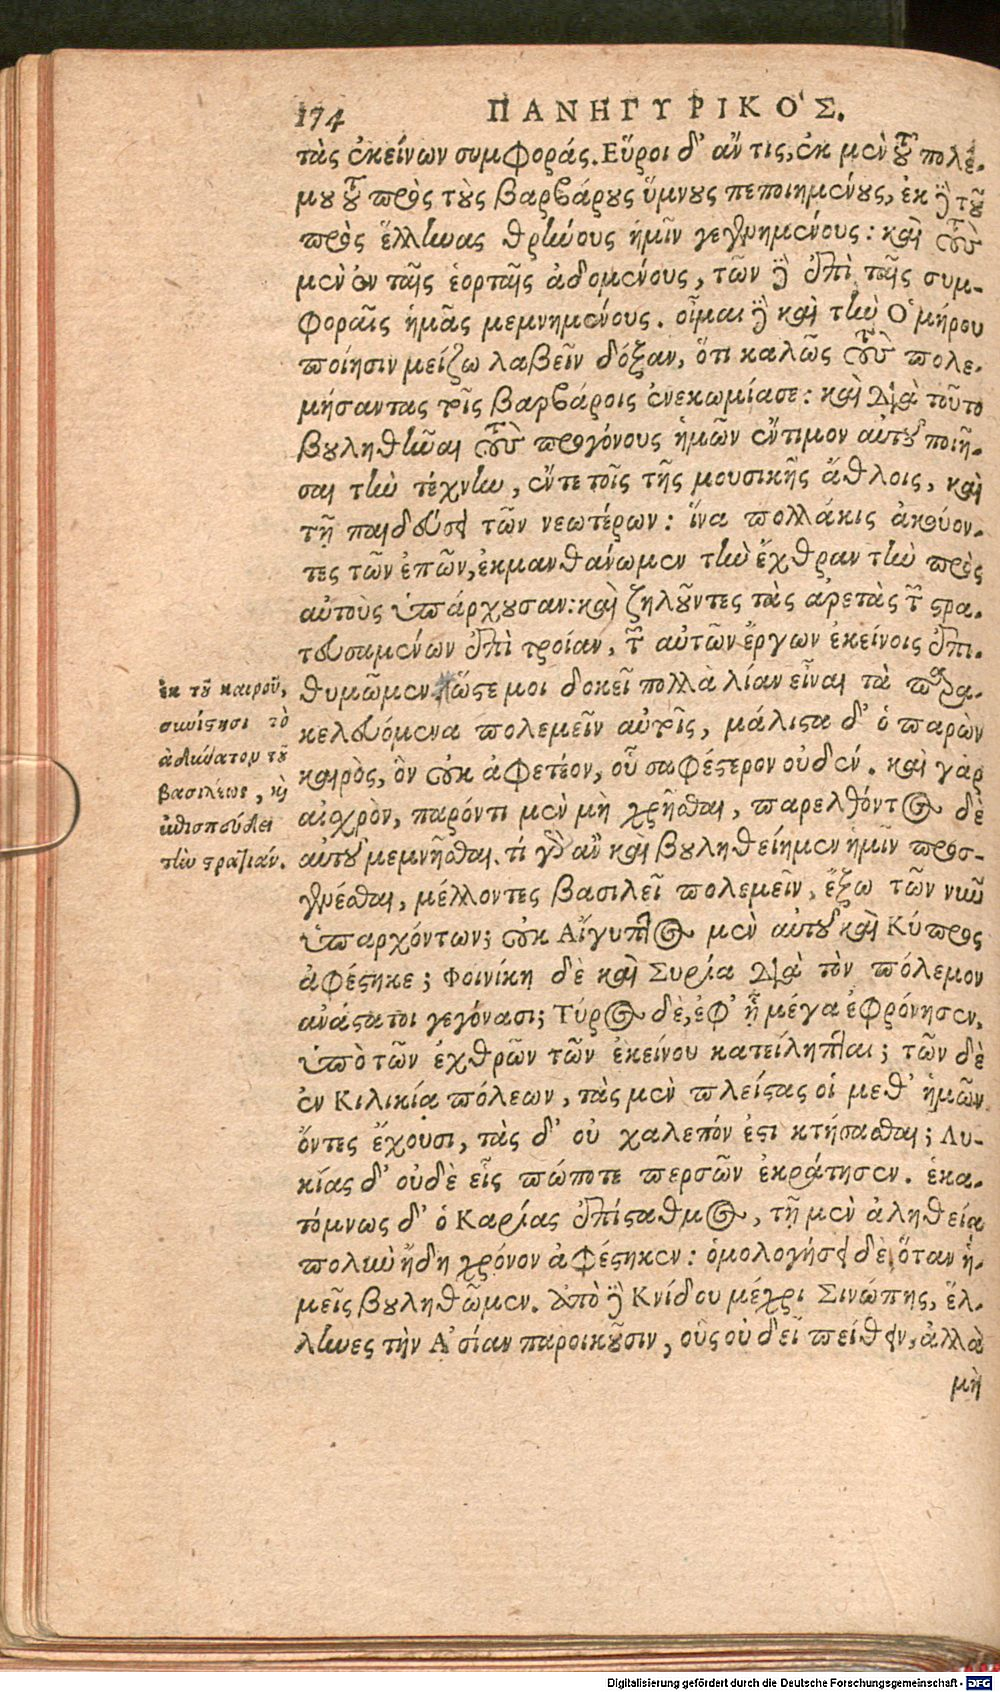 174 ΠΑΝΗΓΥΡΙΚΌΣ.
τὰς ἐκείνων συμφοράς. Εὕροι δ' ἄν τις, ἐκ μὲν τοῦ πολέ-
μου τοῦ πρὸς τοὺς βαρβάρους ὕμνους πεποιημένους, ἐκ δὲ τοῦ
πρὸς ἕλληνας θρήνους ἡμῖν γεγενημένους: καὶ τοὺς
μὲν ἐν ταῖς ἑορταῖς ἀδομένους, τῶν δὲ ἐπὶ ταῖς συμ-
φοραῖς ἡμᾶς μεμνημένους. οἶμαι δὲ καὶ τὴν Ὁμήρου
ποίησιν μείζω λαβεῖν δόξαν, ὅτι καλῶς τοὺς πολε-
μήσαντας τοῖς βαρβάροις ἐνεκωμίασε: καὶ διὰ τοῦτο
βουληθῆναι τοὺς προγόνους ἡμῶν ἔντιμον αὐτοῦ ποιῆ-
σαι τὴν τέχνην, ἔν τε τοῖς τῆς μουσικῆς ἄθλοις, καὶ
τῇ παιδεύσει τῶν νεωτέρων: ἵνα πολλάκις ἀκούον-
τες τῶν ἐπῶν, ἐκμανθάνωμεν τὴν ἔχθραν τὴν πρὸς
αὐτοὺς ὑπάρχουσαν: καὶ ζηλοῦντες τὰς ἀρετὰς τῶν στρα-
τευσαμένων ἐπὶ τροίαν, τῶν αὐτῶν ἔργων ἐκείνοις ἐπι-
θυμῶμεν. ὥστε μοι δοκεῖ πολλὰ λίαν εἶναι τὰ παρα-
κελευόμενα πολεμεῖν αὐτοῖς, μάλιστα δ' ὁ παρὼν
καιρὸς, ὃν οὐκ ἀφετέον, οὗ σαφέστερον οὐδέν. καὶ γὰρ
αἰσχρὸν, παρόντι μὲν μὴ χρῆσθαι, παρελθόντος δὲ
αὐτοῦ μεμνῆσθαι. τί γὰρ ἂν καὶ βουληθείημεν ἡμῖν προσ-
γενέσθαι, μέλλοντες βασιλεῖ πολεμεῖν, ἔξω τῶν νῦν
ὑπαρχόντων; οὐκ Αἴγυπτος μὲν αὐτοῦ καὶ Κύπρος
ἀφέστηκε; Φοινίκη δὲ καὶ Συρία διὰ τὸν πόλεμον
ἀνάστατοι γεγόνασι; Τύρος δὲ, ἐφ' ᾗ μέγα ἐφρόνησεν,
ὑπὸ τῶν ἐχθρῶν τῶν ἐκείνου κατείληπται; τῶν δὲ
ἐν Κιλικίᾳ πόλεων, τὰς μὲν πλείστας οἱ μεθ' ἡμῶν
ὄντες ἔχουσι, τὰς δ' οὐ χαλεπόν ἐστι κτήσασθαι; Λυ-
κίας δ' οὐδὲ εἷς πώποτε περσῶν ἐκράτησεν. ἑκα-
τόμνως δ' ὁ Καρίας ἐπίσταθμος, τῇ μὲν ἀληθείᾳ
πολὺν ἤδη χρόνον ἀφέστηκεν: ὁμολογήσει δὲ, ὅταν ἡ-
μεῖς βουληθῶμεν. Ἀπὸ δὲ Κνίδου μέχρι Σινώπης, ἕλ-
ληνες τὴν Ἀσίαν παροικοῦσιν, οὓς οὐ δεῖ πείθειν, ἀλλὰ
μὴ
ἐκ τοῦ καιροῦ,
συνίστησι τὸ
ἀδύνατον τοῦ
βασιλέως, καὶ
τὴν στρατιάν.